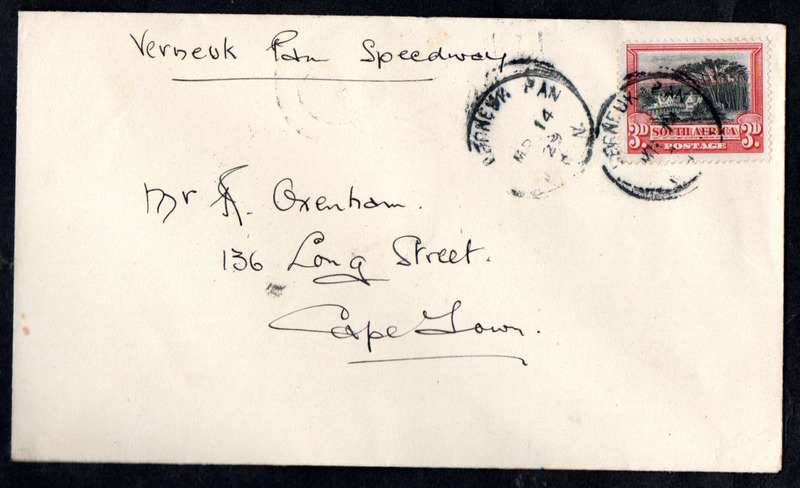 Verneuk Pan Speedway
VERNEUK PAN
14
29
3D SOUTH AFRICA 3D
POSTAGE
VERNEUK PAN
Mr A. Oxenham.
136 Long Street.
Cape Town.